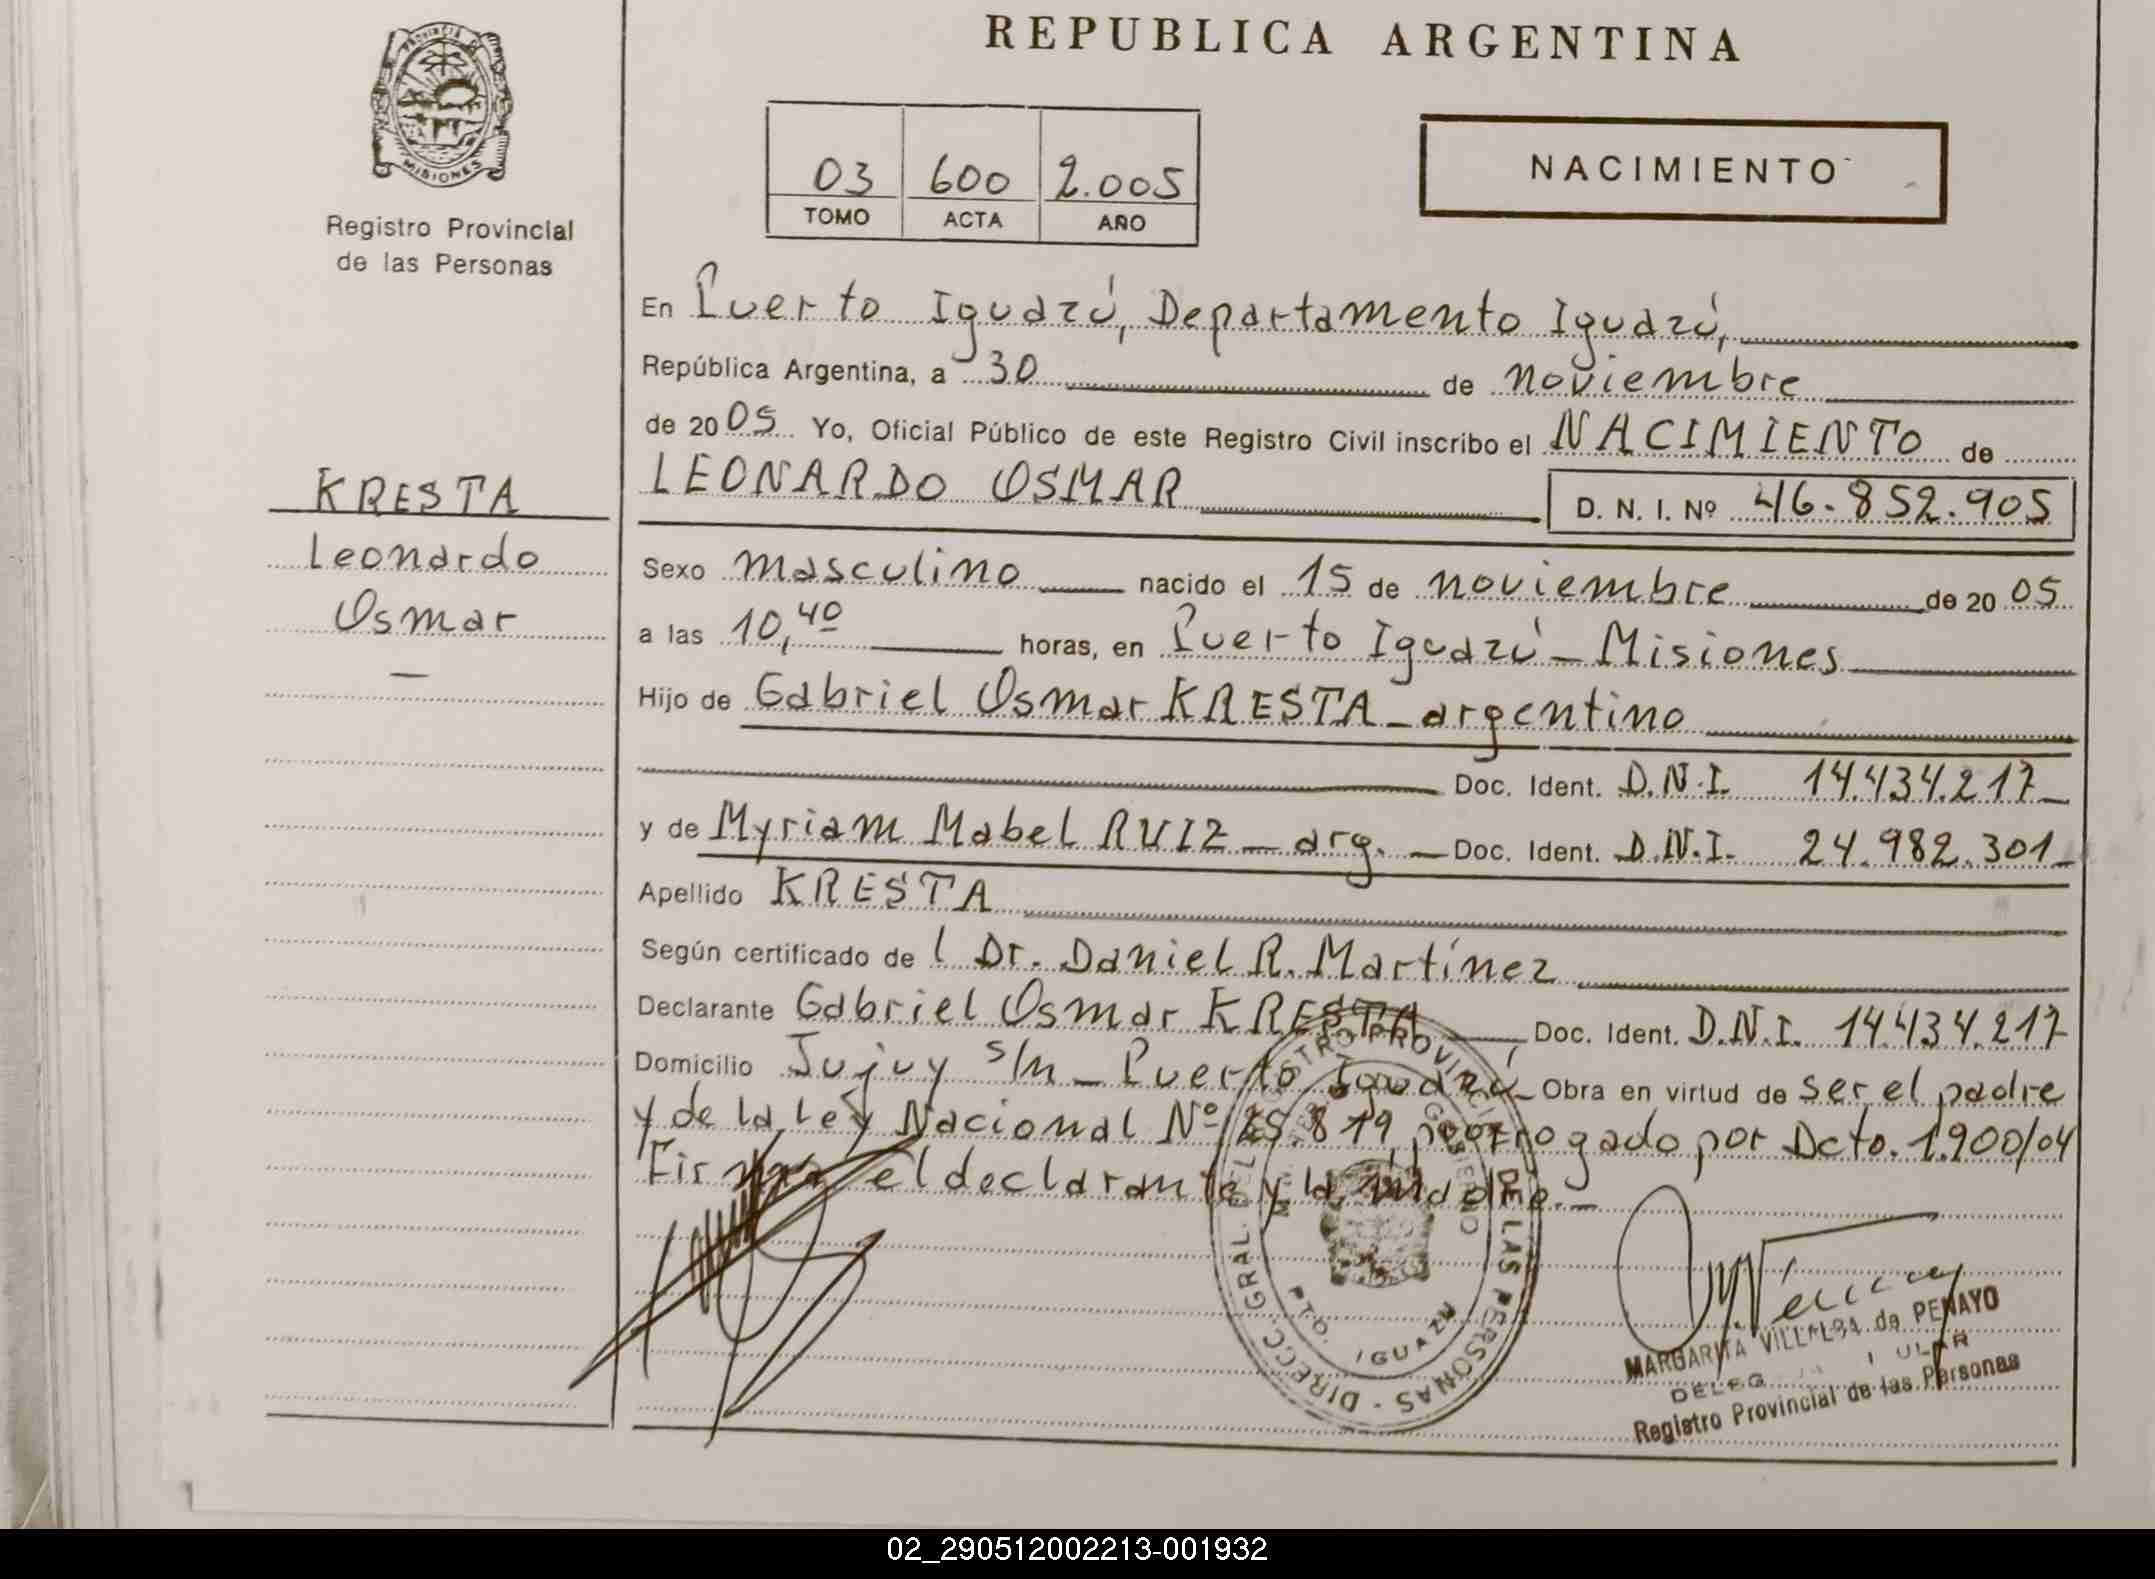 REPUBLICA ARGENTINA
PROVINCIA DE
MISIONES
Registro Provincial
de las Personas
03 600 2.005
TOMO ACTA AÑO
NACIMIENTO
KRESTA
Leonardo
Osmar
—
En Puerto Iguazú, Departamento Iguazú,
República Argentina, a 30 de noviembre
de 2005 Yo, Oficial Público de este Registro Civil inscribo el NACIMIENTO de
LEONARDO OSMAR D. N. I. Nº 46.852.905
Sexo masculino nacido el 15 de noviembre de 2005
a las 10,40 horas, en Puerto Iguazú - Misiones
Hijo de Gabriel Osmar KRESTA - argentino
Doc. Ident. D.N.I. 14.434.217-
y de Myriam Mabel RUIZ - arg. - Doc. Ident. D.N.I. 24.982.301-
Apellido KRESTA
Según certificado de l Dr. Daniel R. Martínez
Declarante Gabriel Osmar KRESTA Doc. Ident. D.N.I. 14.434.217
Domicilio Jujuy s/n - Puerto Iguazú - Obra en virtud de ser el padre
y de la Ley Nacional Nº 25.819, prorrogado por Dcto. 1.900/04
Firma el declarante y la madre. -
DIRECC. GRAL. DEL REGISTRO PROVINCIAL DE LAS PERSONAS
GOBIERNO
PTO. IGUAZU
MARGARITA VILLALBA de PENAYO
Registro Provincial de las Personas
02_290512002213-001932